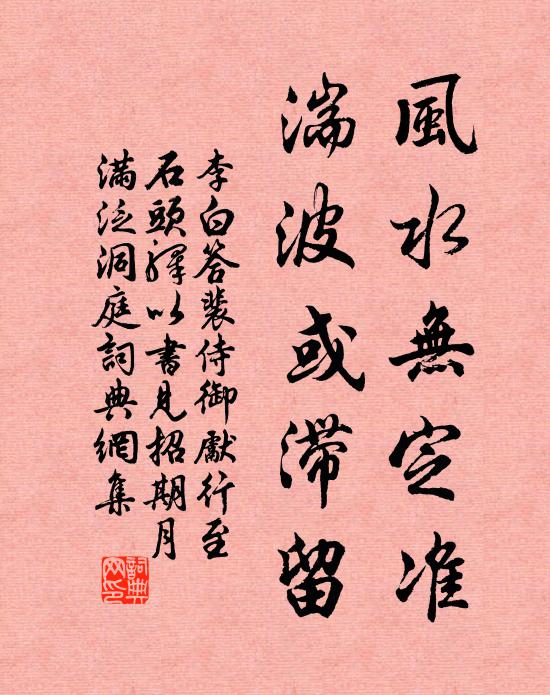 風水無定准
湍波或滯留
李白答裴侍御獻行至
石頭驛以書見招期月
滿泛洞庭詞典網集
詞典
网印